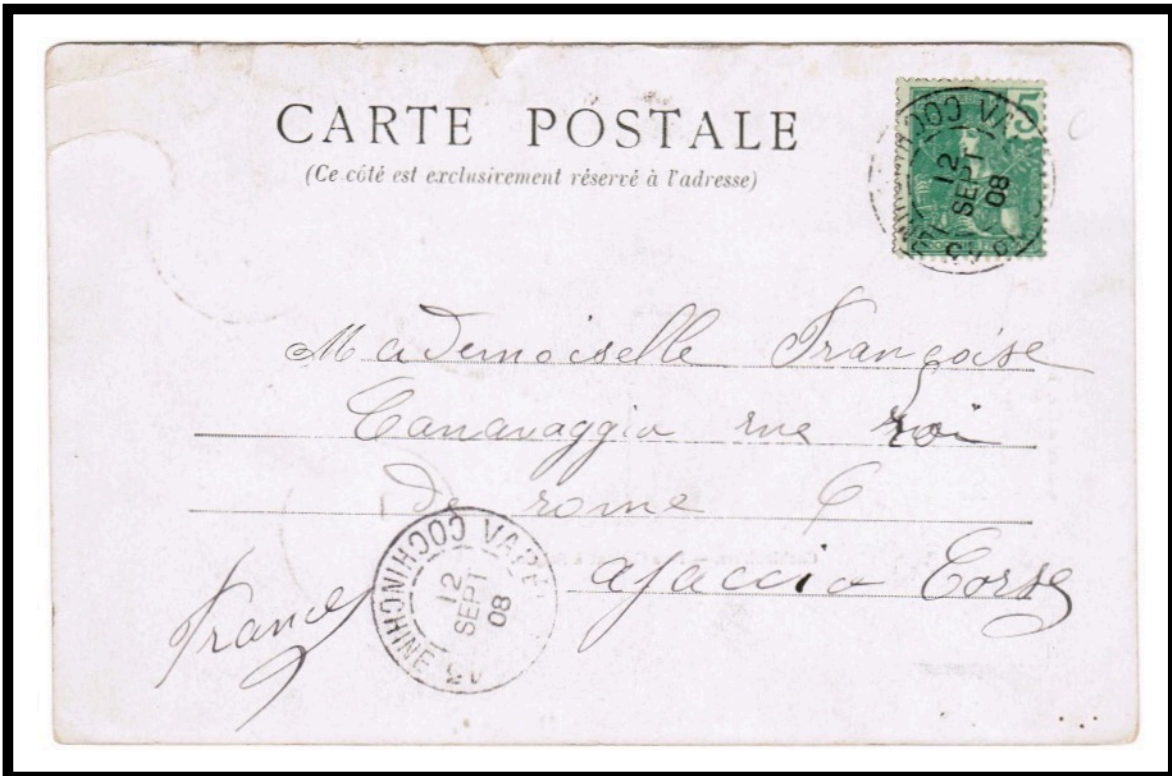 CARTE POSTALE
(Ce côté est exclusivement réservé à l'adresse)
5
12
SEPT
08
Mademoiselle Françoise
Canavaggio rue roi
de rome 6
ajaccio Corse
France
COCHINCHINE
12
SEPT
08